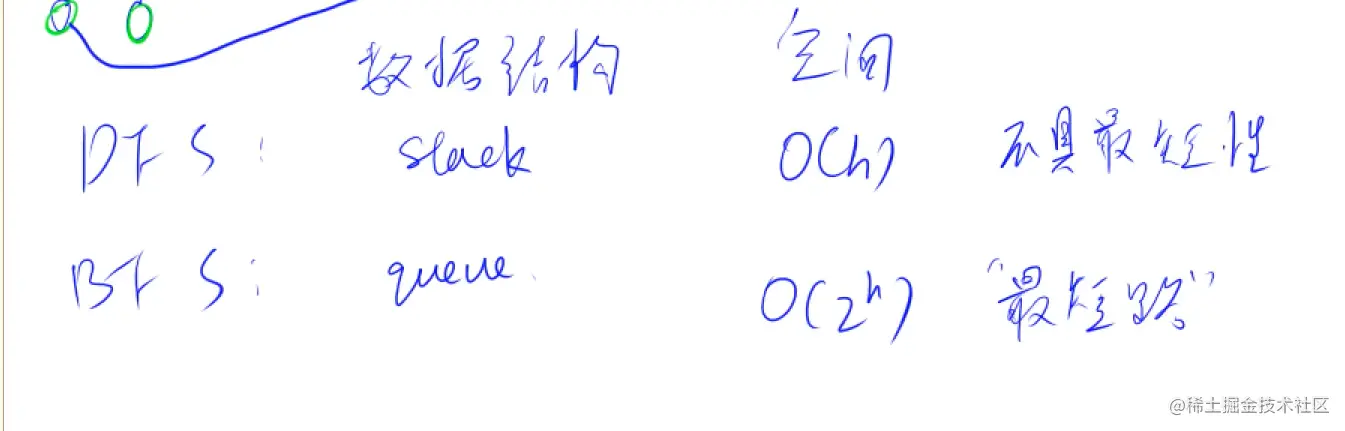 数据结构 空间
DFS: stack O(h) 不具最短性
BFS: queue. O(2^h) "最短路"
@稀土掘金技术社区